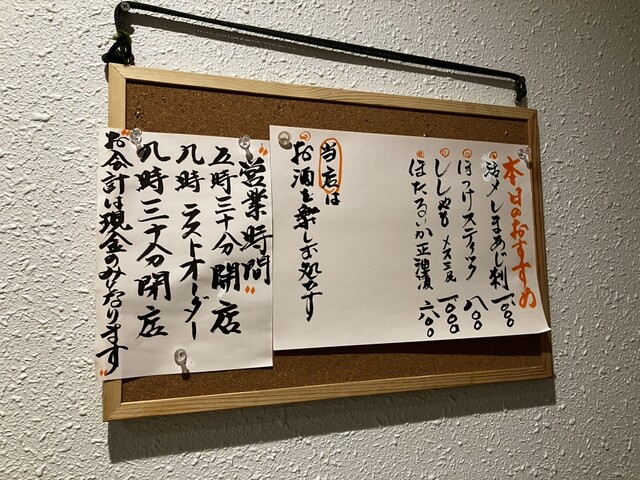 本日のおすすめ
活〆しまあじ刺 一、〇〇〇
ほっけスティック 八〇〇
ししゃも メス三尾 一、〇〇〇
ほたるいか正油漬 六〇〇
当店は
お酒を楽しむ処です
"営業時間"
五時三十分開店
八時ラストオーダー
八時三十分閉店
"お会計は現金のみなります"